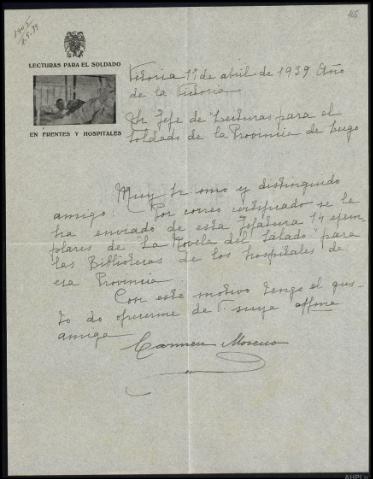 LECTURAS PARA EL SOLDADO
EN FRENTES Y HOSPITALES
Vitoria 1º de abril de 1939 Año
de la Victoria
Sr Jefe de "Lecturas para el
Soldado de la Provincia de Lugo
Muy Sr mio y distinguido
amigo: Por correo certificado se le
ha enviado de esta Jefatura 14 ejem
plares de "La Novela del Soldado" para
las Bibliotecas de los Hospitales de
esa Provincia
Con este motivo tengo el gus-
to de ofrecerme de V suya affma
amiga
Carmen Moreno